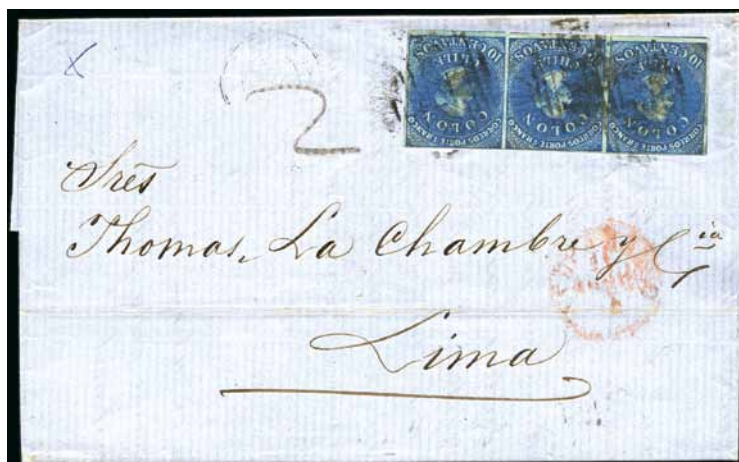 10 CENTAVOS CHILE COLON CORREOS PORTE FRANCO
10 CENTAVOS CHILE COLON CORREOS PORTE FRANCO
10 CENTAVOS CHILE COLON CORREOS PORTE FRANCO
2
Srēs
Thomas, La Chambre y Cia
Lima